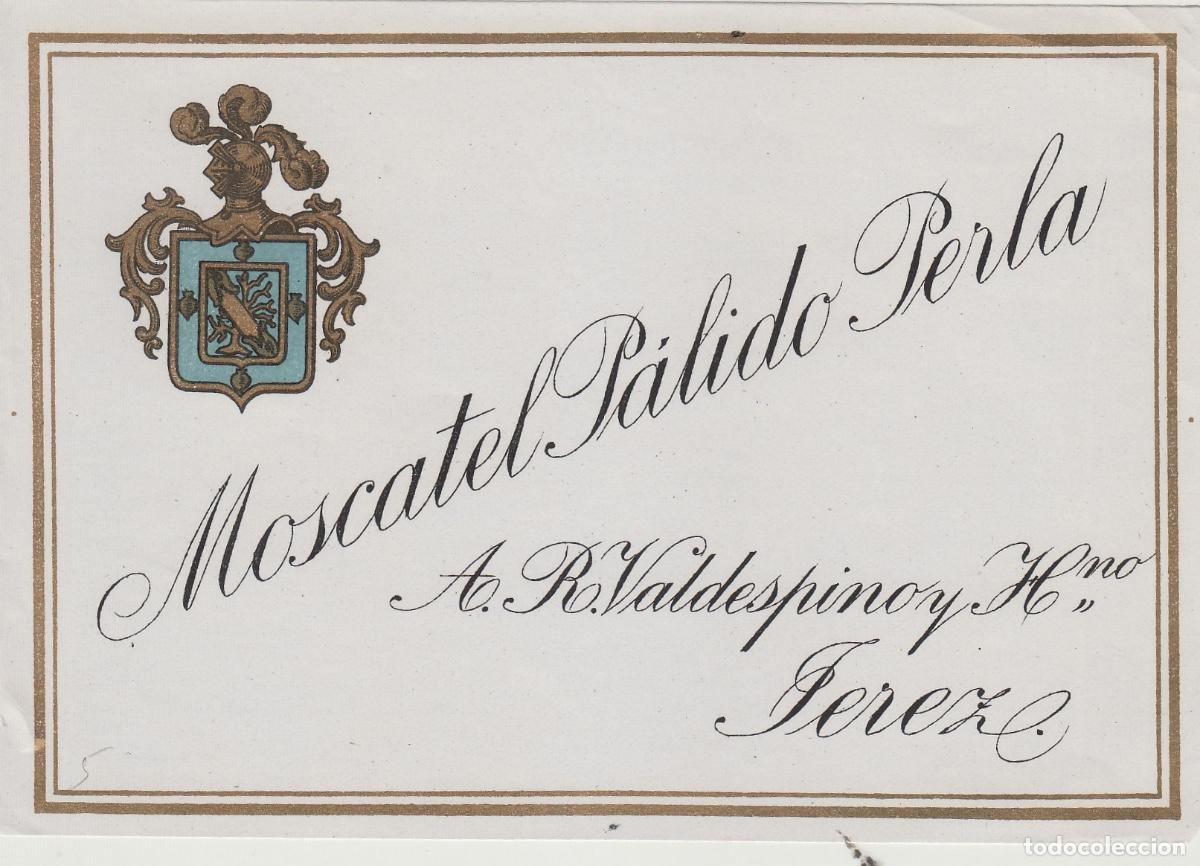 Moscatel Pálido Perla
A. R. Valdespino y H.no
Jerez.
5
todocoleccion